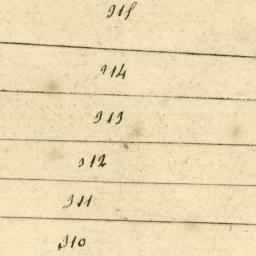 915
914
913
912
911
910